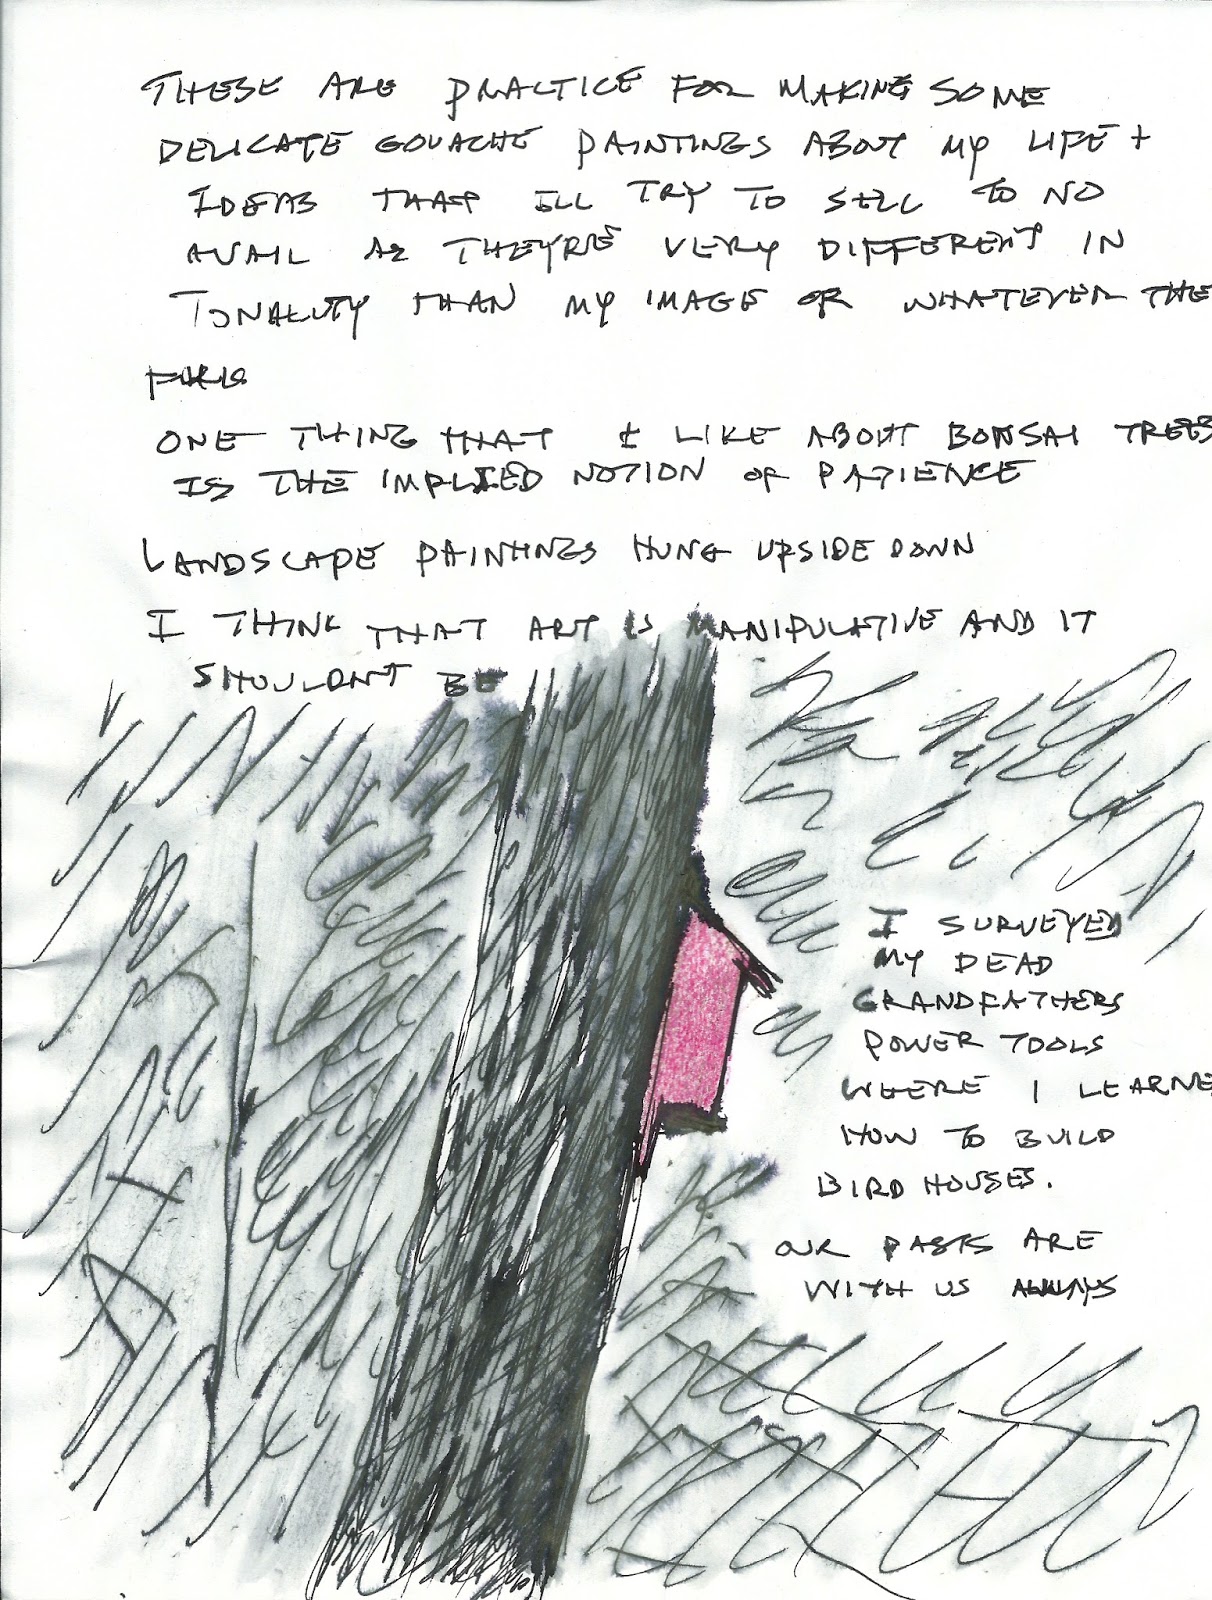 THESE ARE PRACTICE FOR MAKING SOME
DELICATE GOUACHE PAINTINGS ABOUT MY LIFE +
IDEAS THAT ILL TRY TO SELL TO NO
AVAIL AS THEYRE VERY DIFFERENT IN
TONALITY THAN MY IMAGE OR WHATEVER THE
ONE THING THAT I LIKE ABOUT BONSAI TREES
IS THE IMPLIED NOTION OF PATIENCE
LANDSCAPE PAINTINGS HUNG UPSIDE DOWN
I THINK THAT ART IS MANIPULATIVE AND IT
SHOULDNT BE
I SURVEYED
MY DEAD
GRANDFATHERS
POWER TOOLS
WHERE I LEARNE
HOW TO BUILD
BIRD HOUSES.
OUR PASTS ARE
WITH US ALWAYS